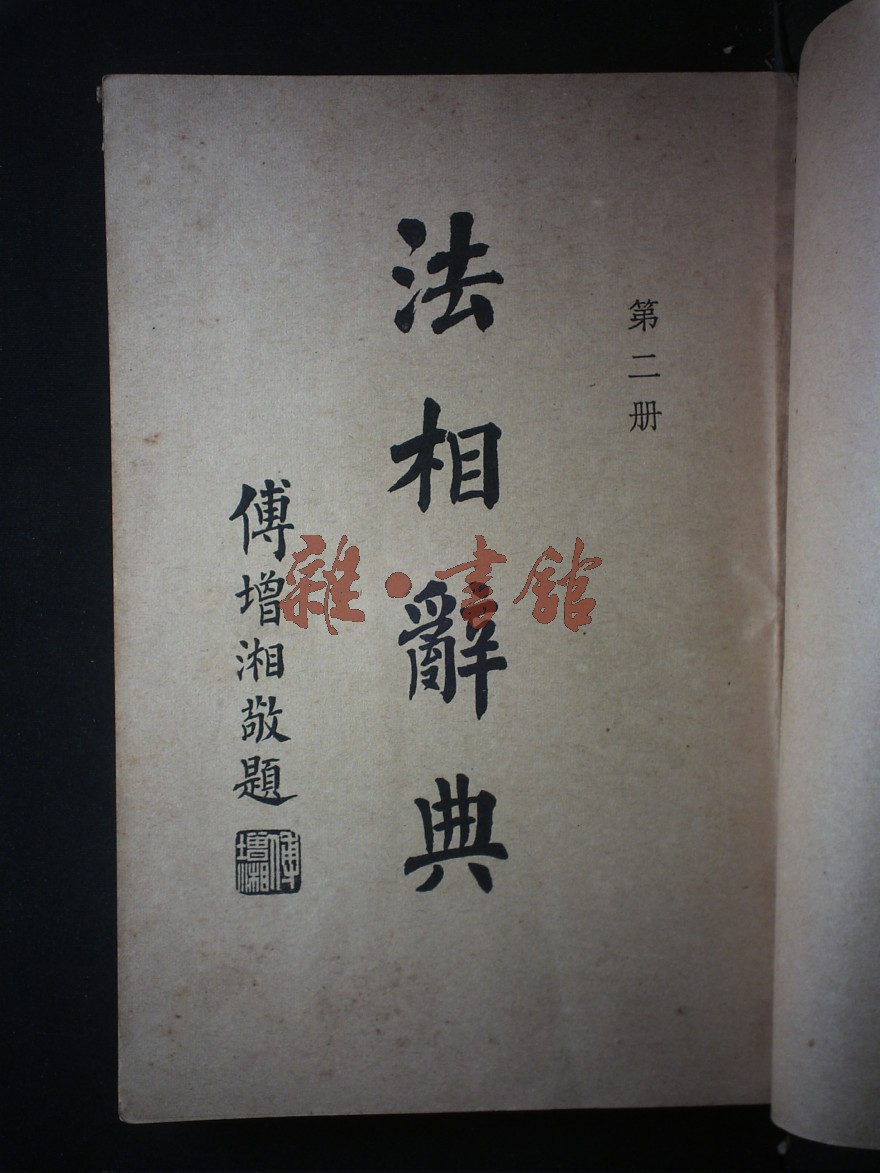 第二册
法相辭典
傅增湘敬題
傅增湘
雜·書館